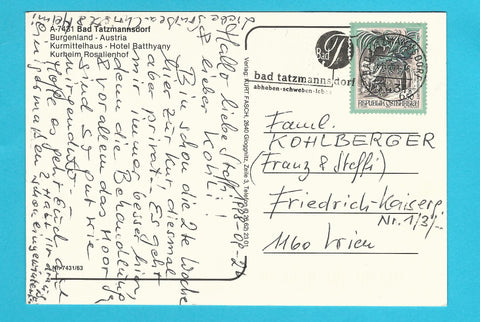 A-7431 Bad Tatzmannsdorf
Burgenland - Austria
Kurmittelhaus - Hotel Batthyany
Kurheim Rosalienhof
Hallo liebe Steffi,
lieber Kohli!
Bin schon die 2te Woche
hier zur Kur, diesmal
aber privat. Es geht
mir immer besser hier,
denn die Behandlung
& vor allem das Moor
sind so gut wie
nirgendwo.
Hoffe es geht Euch auch
einigermaßen
Nr. 7431/63
Verlag: KURT FASCH, 2640 Gloggnitz, Zeile 3, Telefon
Bad
bad tatzmannsdorf
abheben-schweben-leben
REPUBLIK ÖSTERREICH
Faml.
KOHLBERGER
(Franz & Steffi)
Friedrich-Kaiserg
Nr. 1/3/
1160 Wien